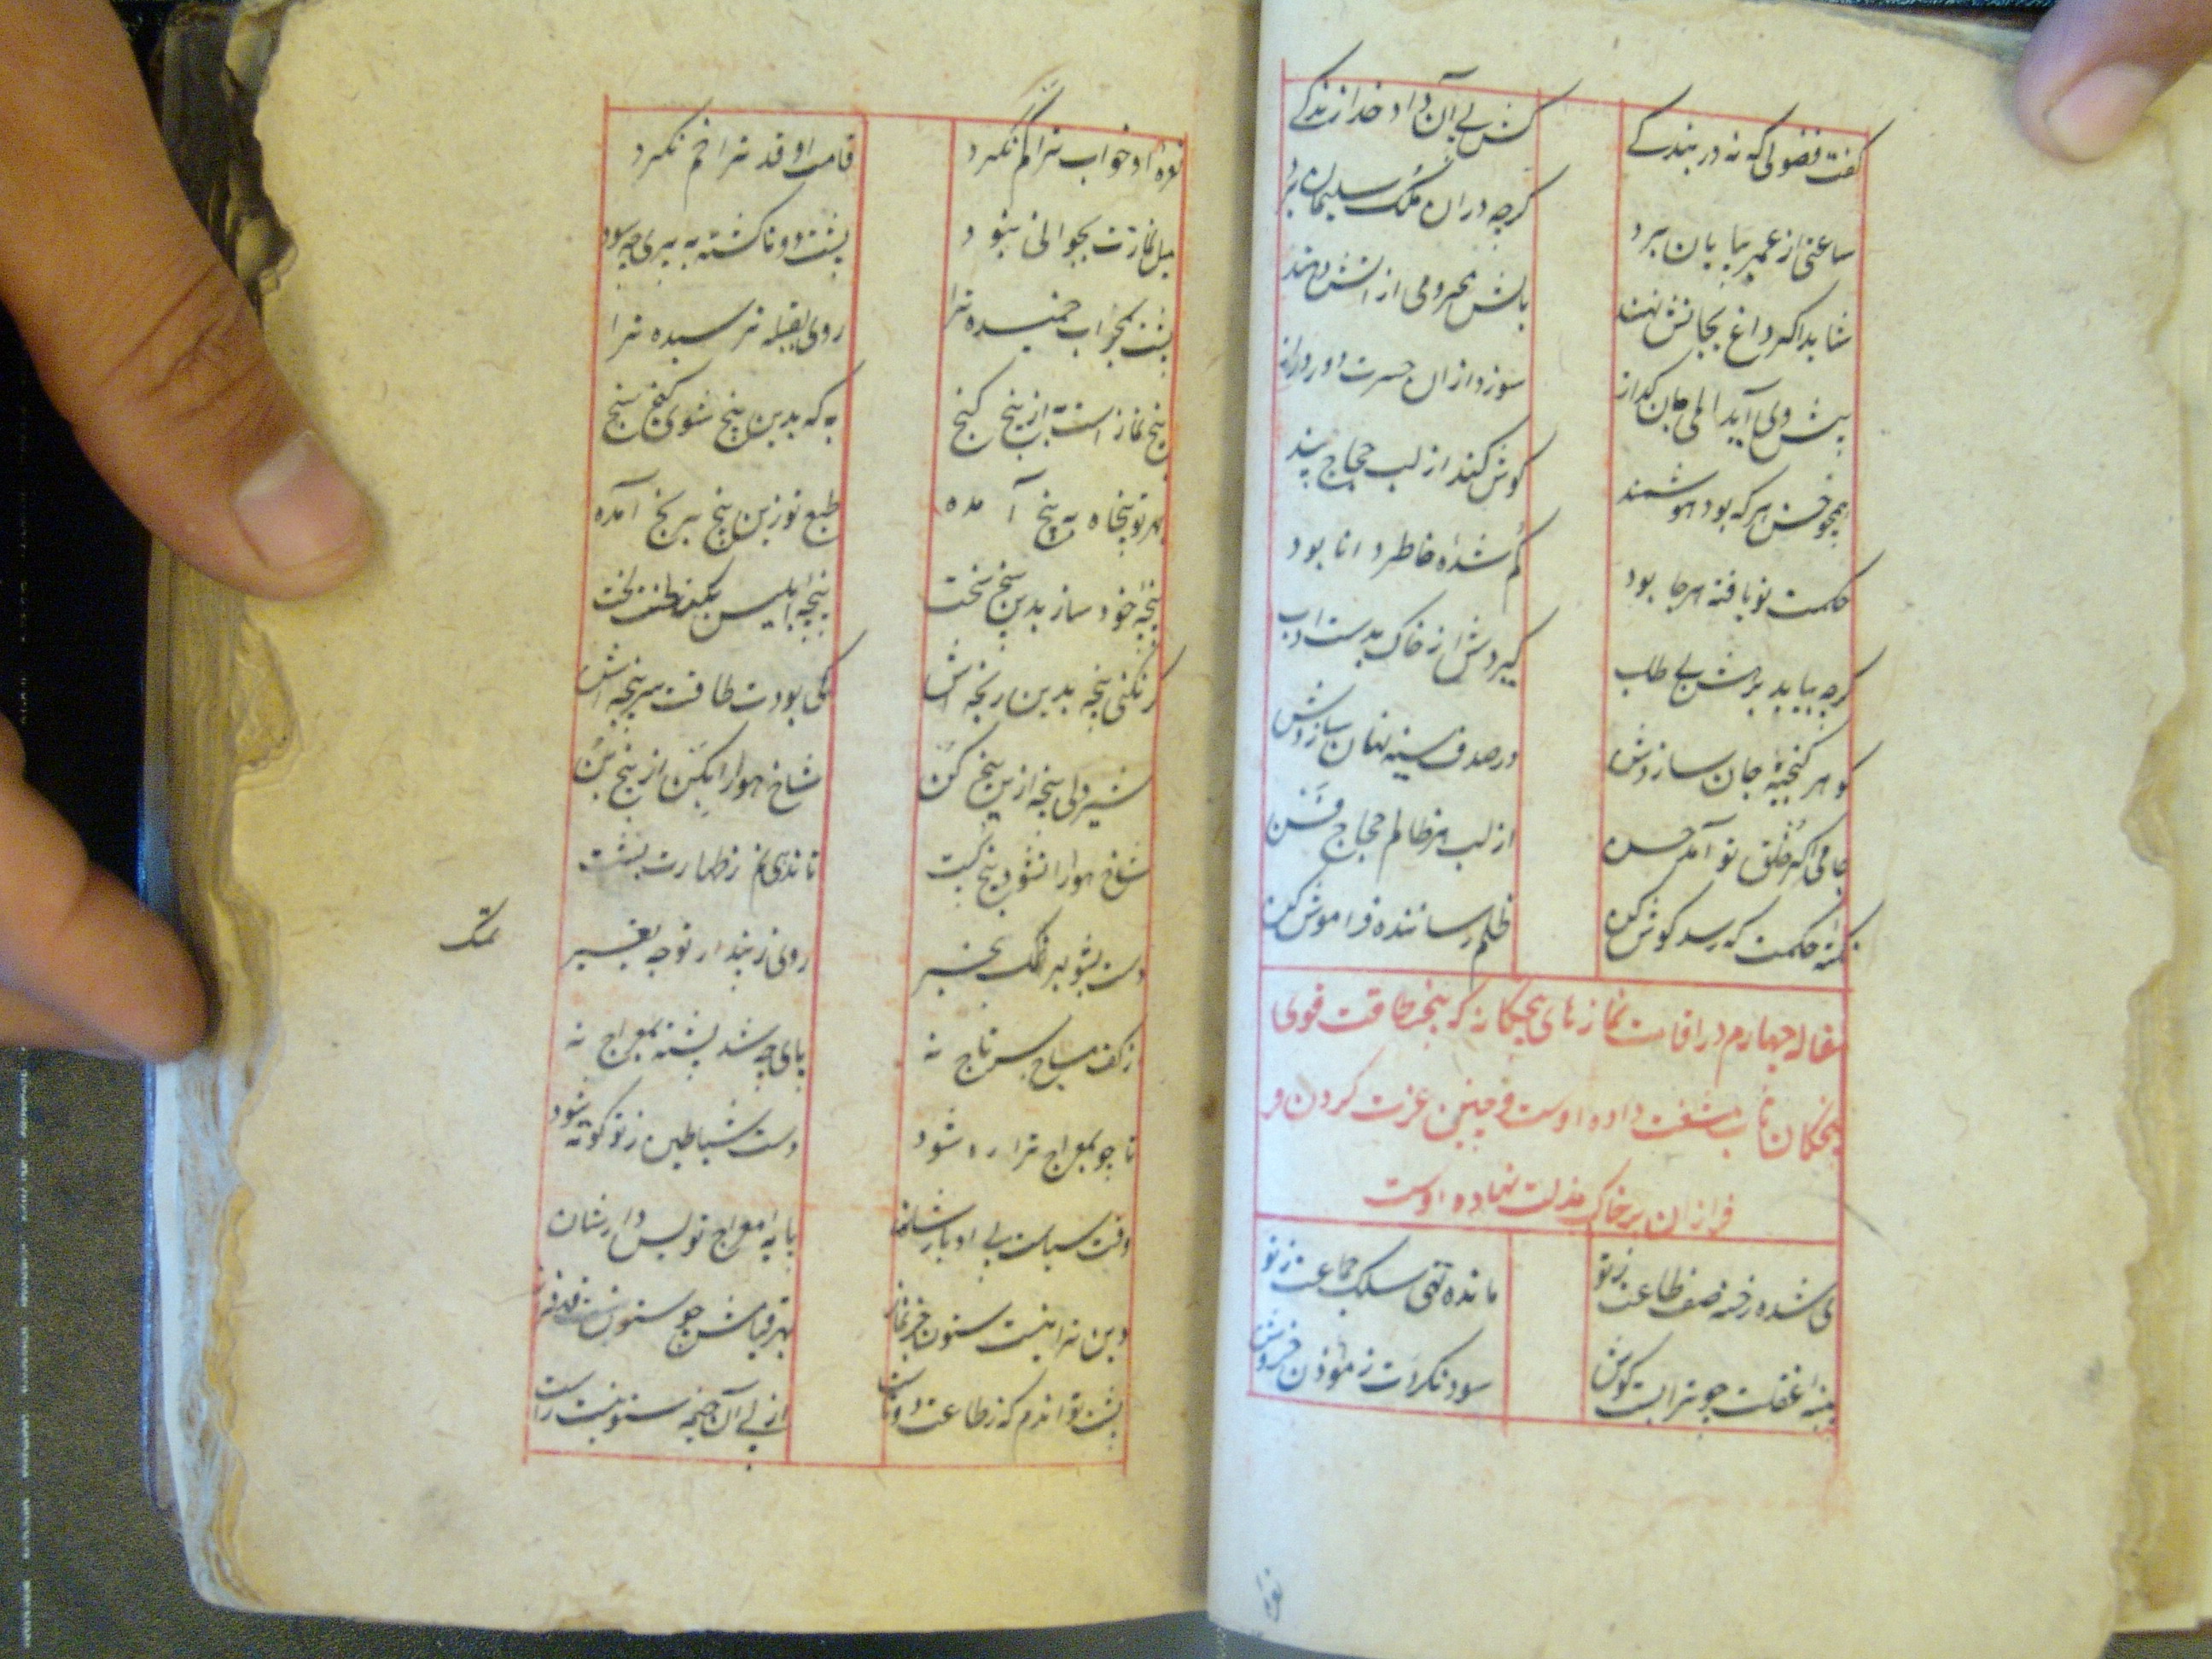 گفت فضولی که نه در بندگی کش پی آن داد خدا زندگی
ساعتی از عمر بپایان برد گرچه دران ملک سلیمان برد
شاید اگر داغ بجانش نهند بالش محرومی از آتش دهند
پیش وی آید المی جان گداز سوزد ازان حسرت دور و دراز
همچو حسن هر که بود هوشمند گوش کند از لب حجاج پند
حکمت نو یافته هر جا بود گم شده خاطر دانا بود
گرچه بیاید برش بی طلب گیردش از خاک بدست ادب
گوهر گنجینه جان سازدش در صدف سینه نهان سازدش
جامی اگر خلق تو آمد حسن از لب هر ظالم حجاج فن
نکته حکمت که رسد گوش کن ظلم رساننده فراموش کن
مقاله چهارم در اقامت نمازهای پنجگانه که پنجه طاقت قوی
پنجگان تاب مشقت داده اوست و جبین عزت گردن
فرازان بر خاک مذلت نهاده اوست
ای شده رخنه صف طاعت ز تو مانده تهی سلک جماعت ز تو
پنبه غفلت چو ترا بست گوش سود نکردت ز مؤذن خروش
نعره او خواب ترا کم نکرد قامت او قد ترا خم نکرد
میل نمازت بجوانی نبود پشت دوتا گشته به پیری چه سود
پشت بمحراب خمیده ترا روی بقبله نرسیده ترا
پنج نماز است به از پنج گنج به که بدین پنج شوی گنج سنج
بهر تو پنجاه به پنج آمده طبع تو زین پنج برنج آمده
پنجه خود ساز بدین پنج سخت پنجه ابلیس بکن لخت لخت
گر نکنی پنجه بدین رنجه اش کی بودت طاقت سرپنجه اش
شیر دلی پنجه ازین پنج کن شاخ هوا را بکن از بیخ و بن
شاخ هوا را نشود بیخ سست تا ندهی نم ز طهارت نخست
دست بشو بر فلک بخیر روی ز پندار توجه بغیر
از کف مساح بسر تاج نه پای چه شد پشته بمعراج نه
تا چو بمعراج ترا ره شود دست شیاطین ز تو کوته شود
وقت سیاست پی ادبارشان پایه معراج تو بس دارشان
دین ترا نیست ستون جز نماز بهر قیامش چو ستون قد فراز
پشت تو اندم که ز طاعت دوتاست از پی آن خیمه ستونیست راست
تمسک
نعره